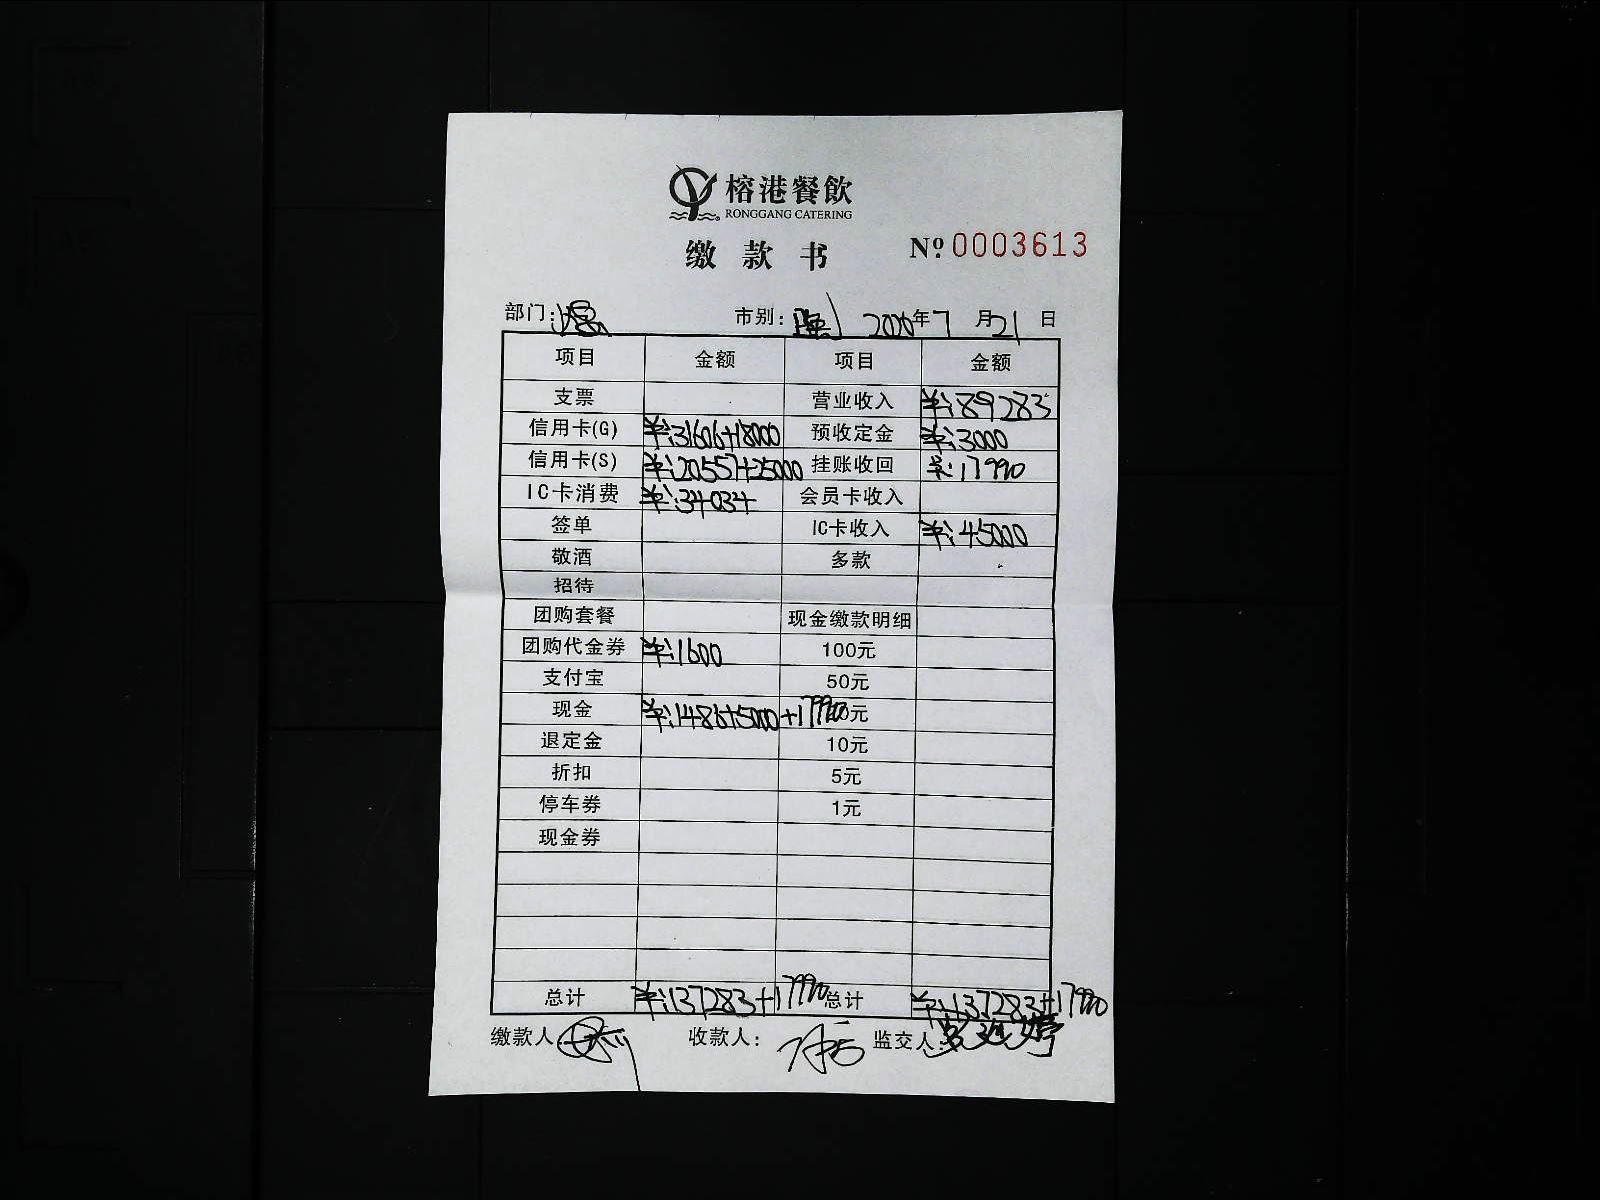 榕港餐飲
RONGGANG CATERING
缴款书 Nº 0003613
部门: 市别: 2020年7月21日
项目 金额 项目 金额
支票 营业收入 ¥:89283
信用卡(G) ¥:31606+18000 预收定金 ¥:3000
信用卡(S) ¥:20557+25000 挂账收回 ¥:17990
IC卡消费 ¥:34034 会员卡收入
签单 IC卡收入 ¥:45000
敬酒 多款
招待
团购套餐 现金缴款明细
团购代金券 ¥:1600 100元
支付宝 50元
现金 ¥:1486+5000+17990 元
退定金 10元
折扣 5元
停车券 1元
现金券
总计 ¥:137283+17990 总计 ¥:137283+17990
缴款人: 收款人: 监交人: